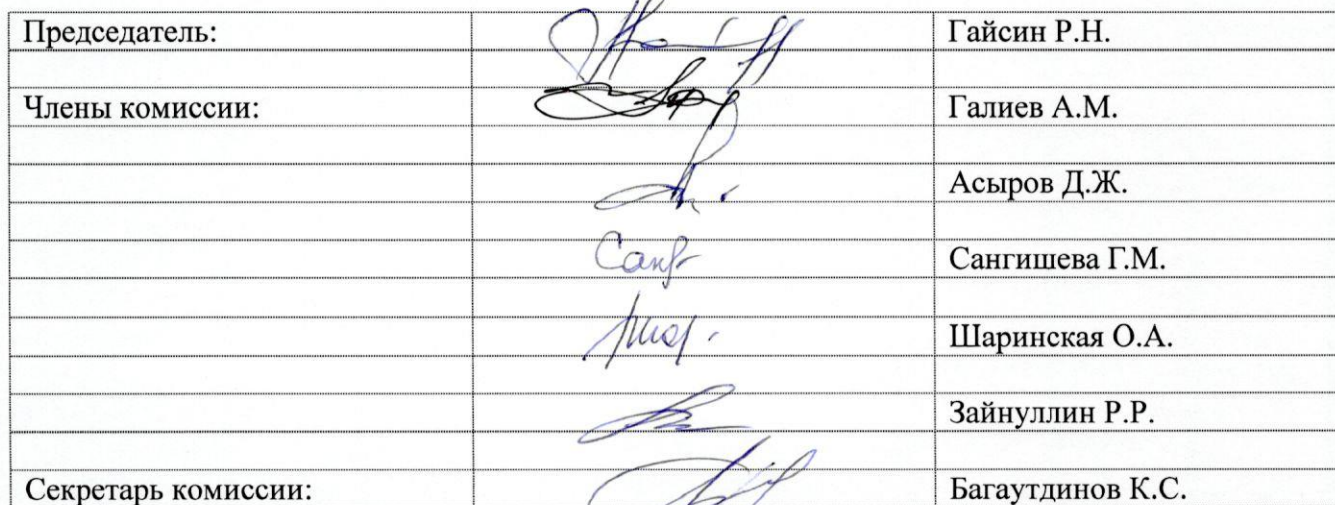 Председатель: Гайсин Р.Н.
Члены комиссии: Галиев А.М.
Асыров Д.Ж.
Сангишева Г.М.
Шаринская О.А.
Зайнуллин Р.Р.
Секретарь комиссии: Багаутдинов К.С.